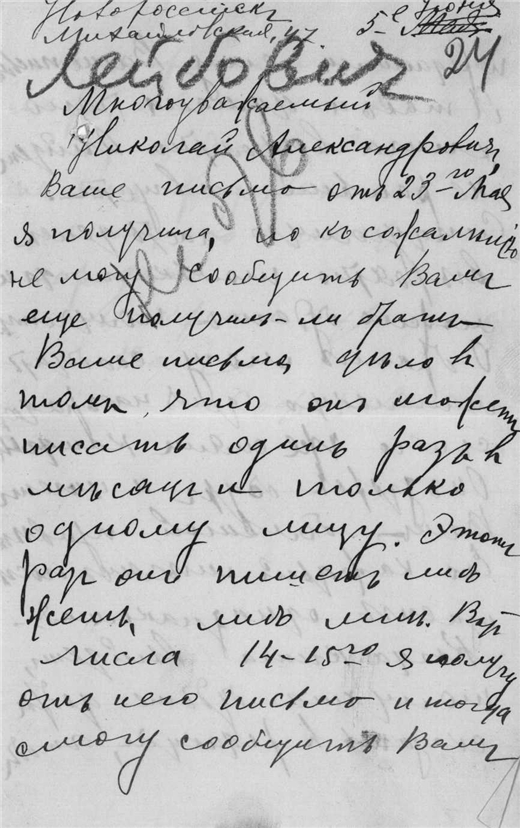 Новороссійскъ
Михайловская, 47. 5-е Іюня
Лейбович 24
Многоуважаемый
Николай Александрович,
Ваше письмо отъ 23-го Мая
я получила, но къ сожалѣнію
не могу сообщить Вамъ
еще получилъ-ли братъ
Ваше письмо, дѣло въ
томъ, что онъ можетъ
писать одинъ разъ въ
мѣсяцъ и только
одному лицу.
раз онъ пишетъ либо
женѣ, либо мнѣ.
числа 14-15го я получу
отъ него письмо и тогда
смогу сообщить Вамъ